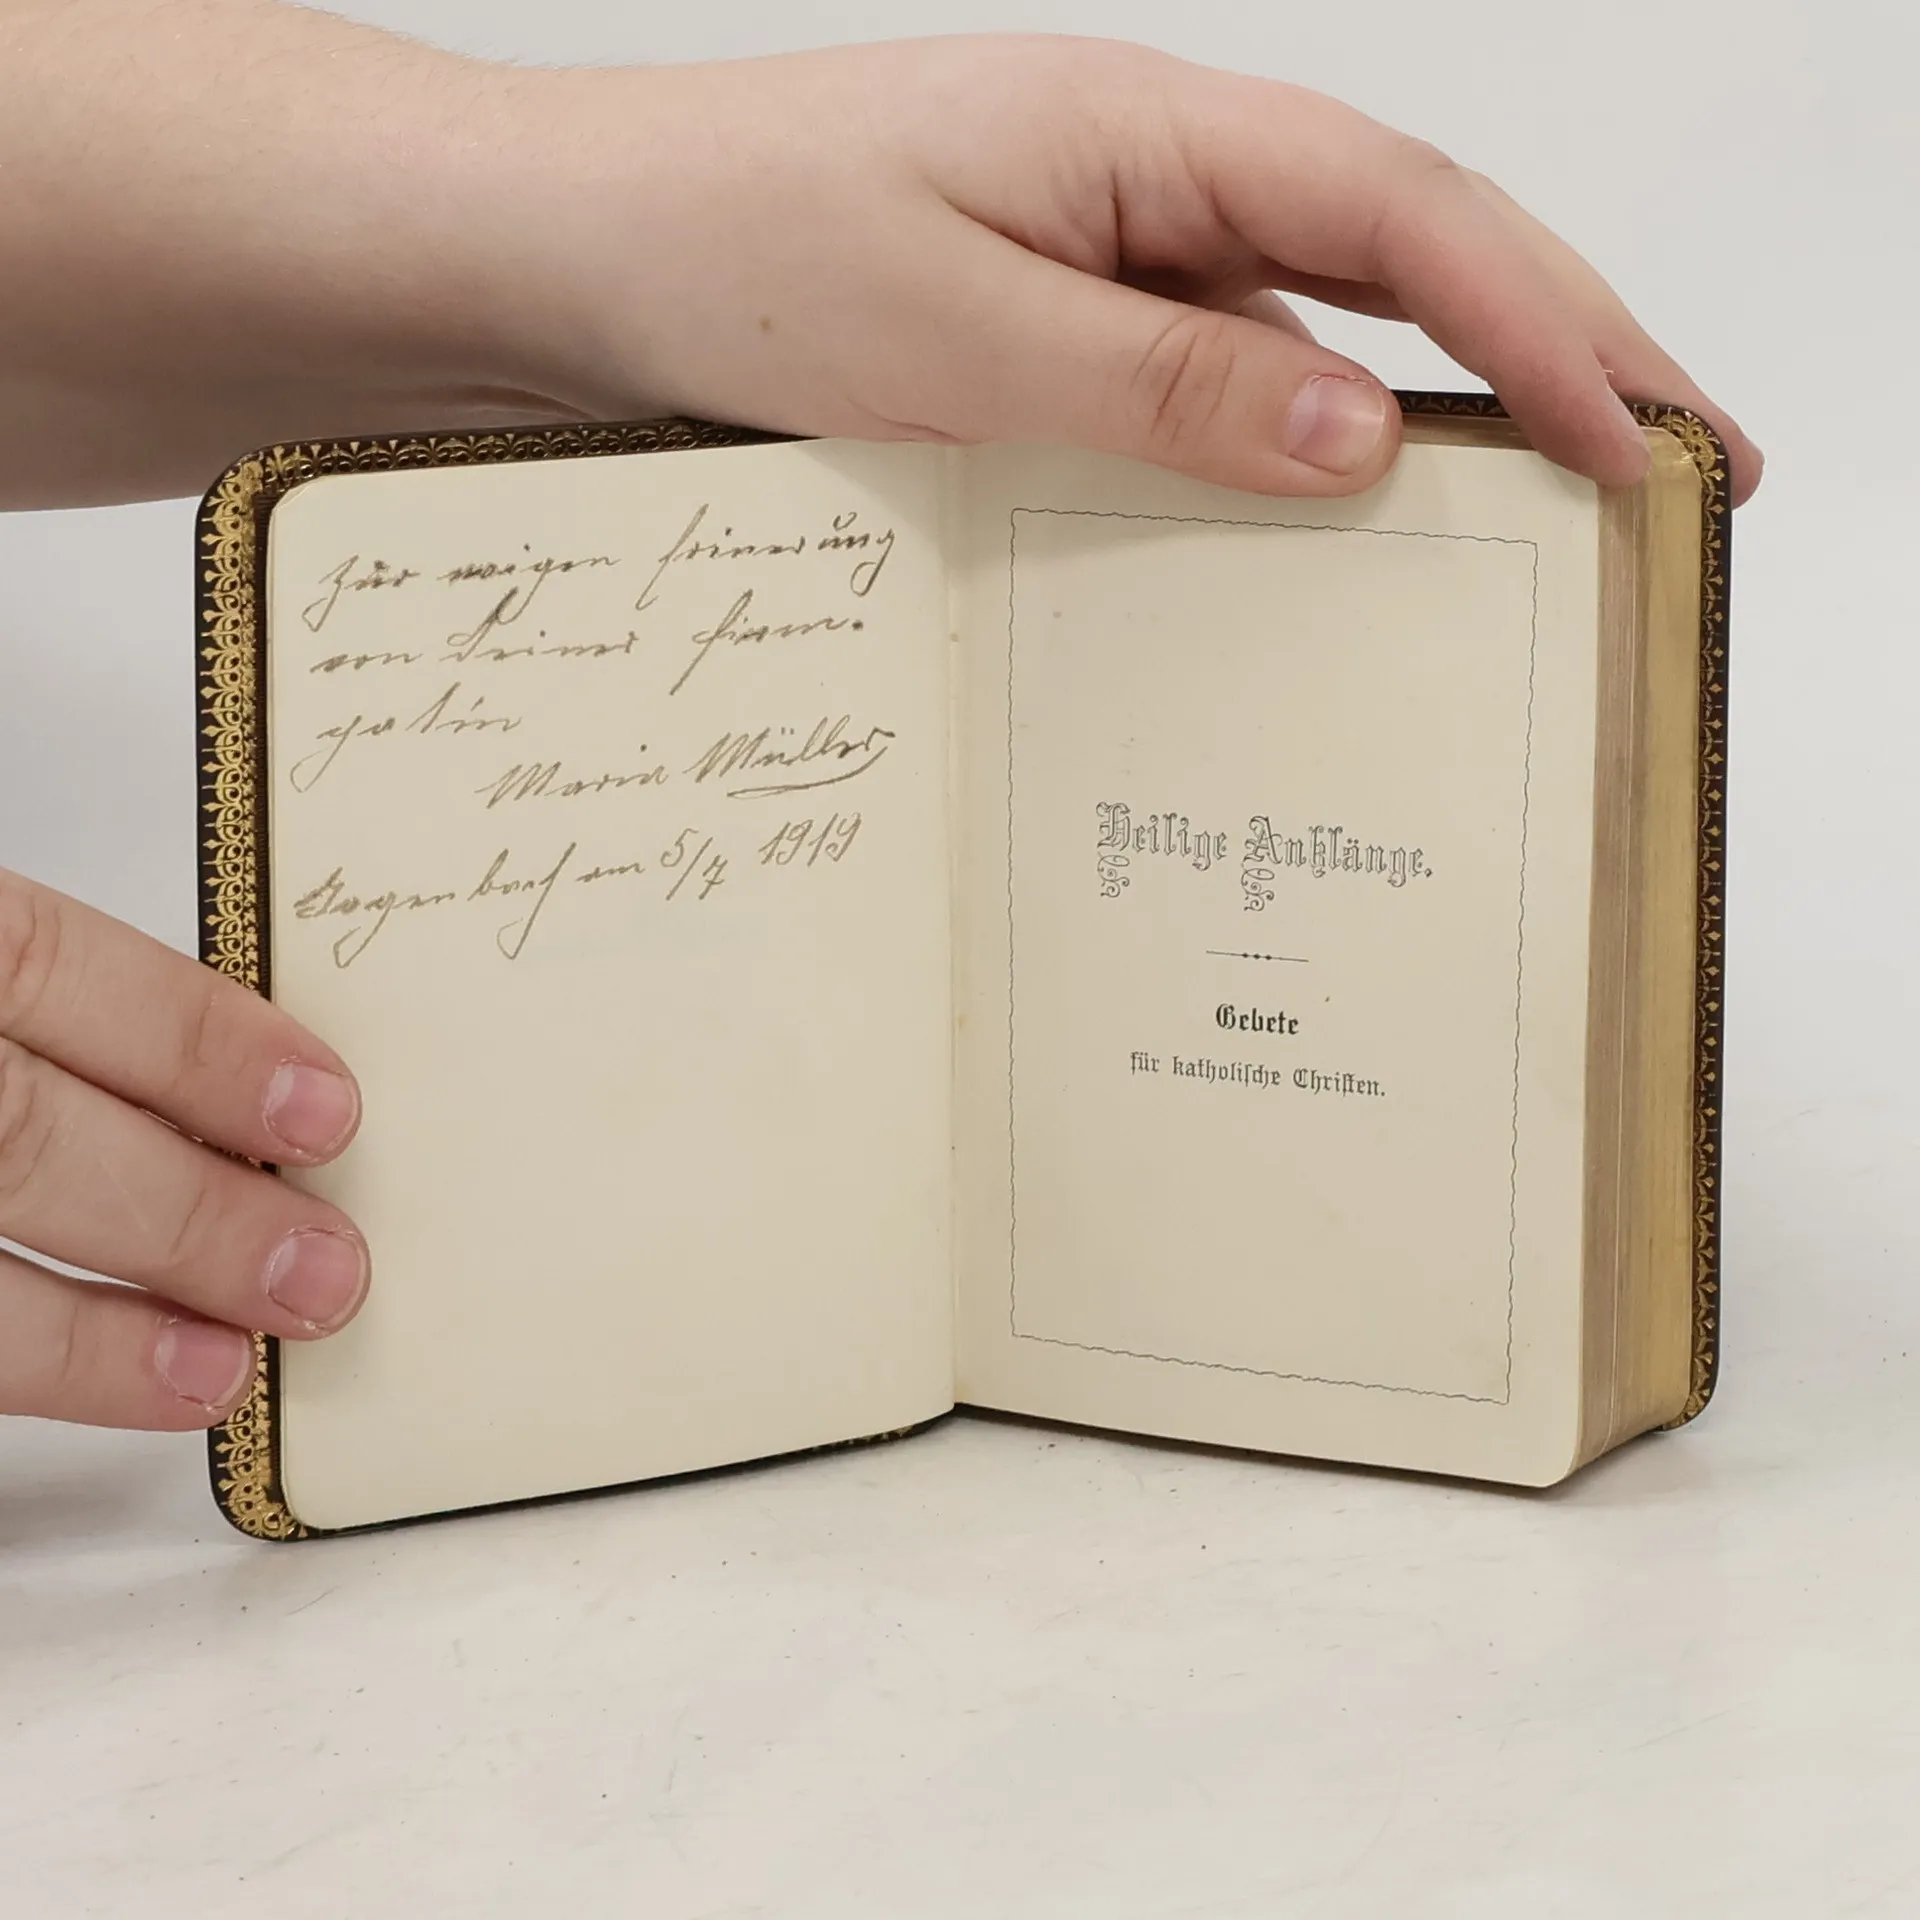 Zur ewigen Erinerung
von Deiner Firm-
gotin
Maria Müller
Gagenbach am 5/7 1919
Heilige Anklänge.
Gebete
für katholische Christen.